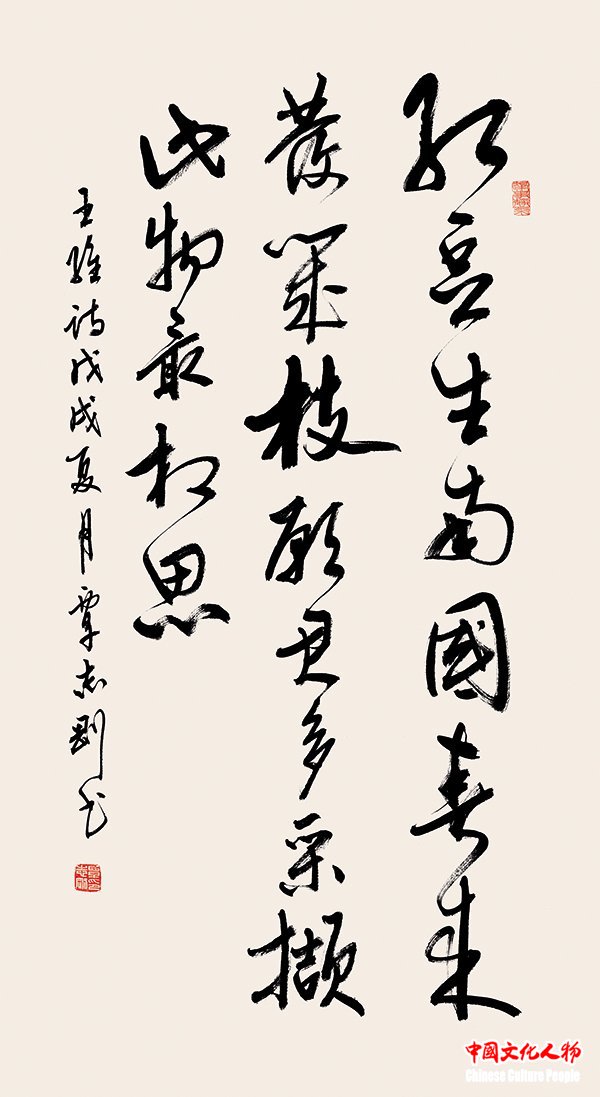 紅豆生南國春来
發幾枝願君多采撷
此物最相思
王維詩戊戌夏月覃志剛書
中國文化人物
Chinese Culture People